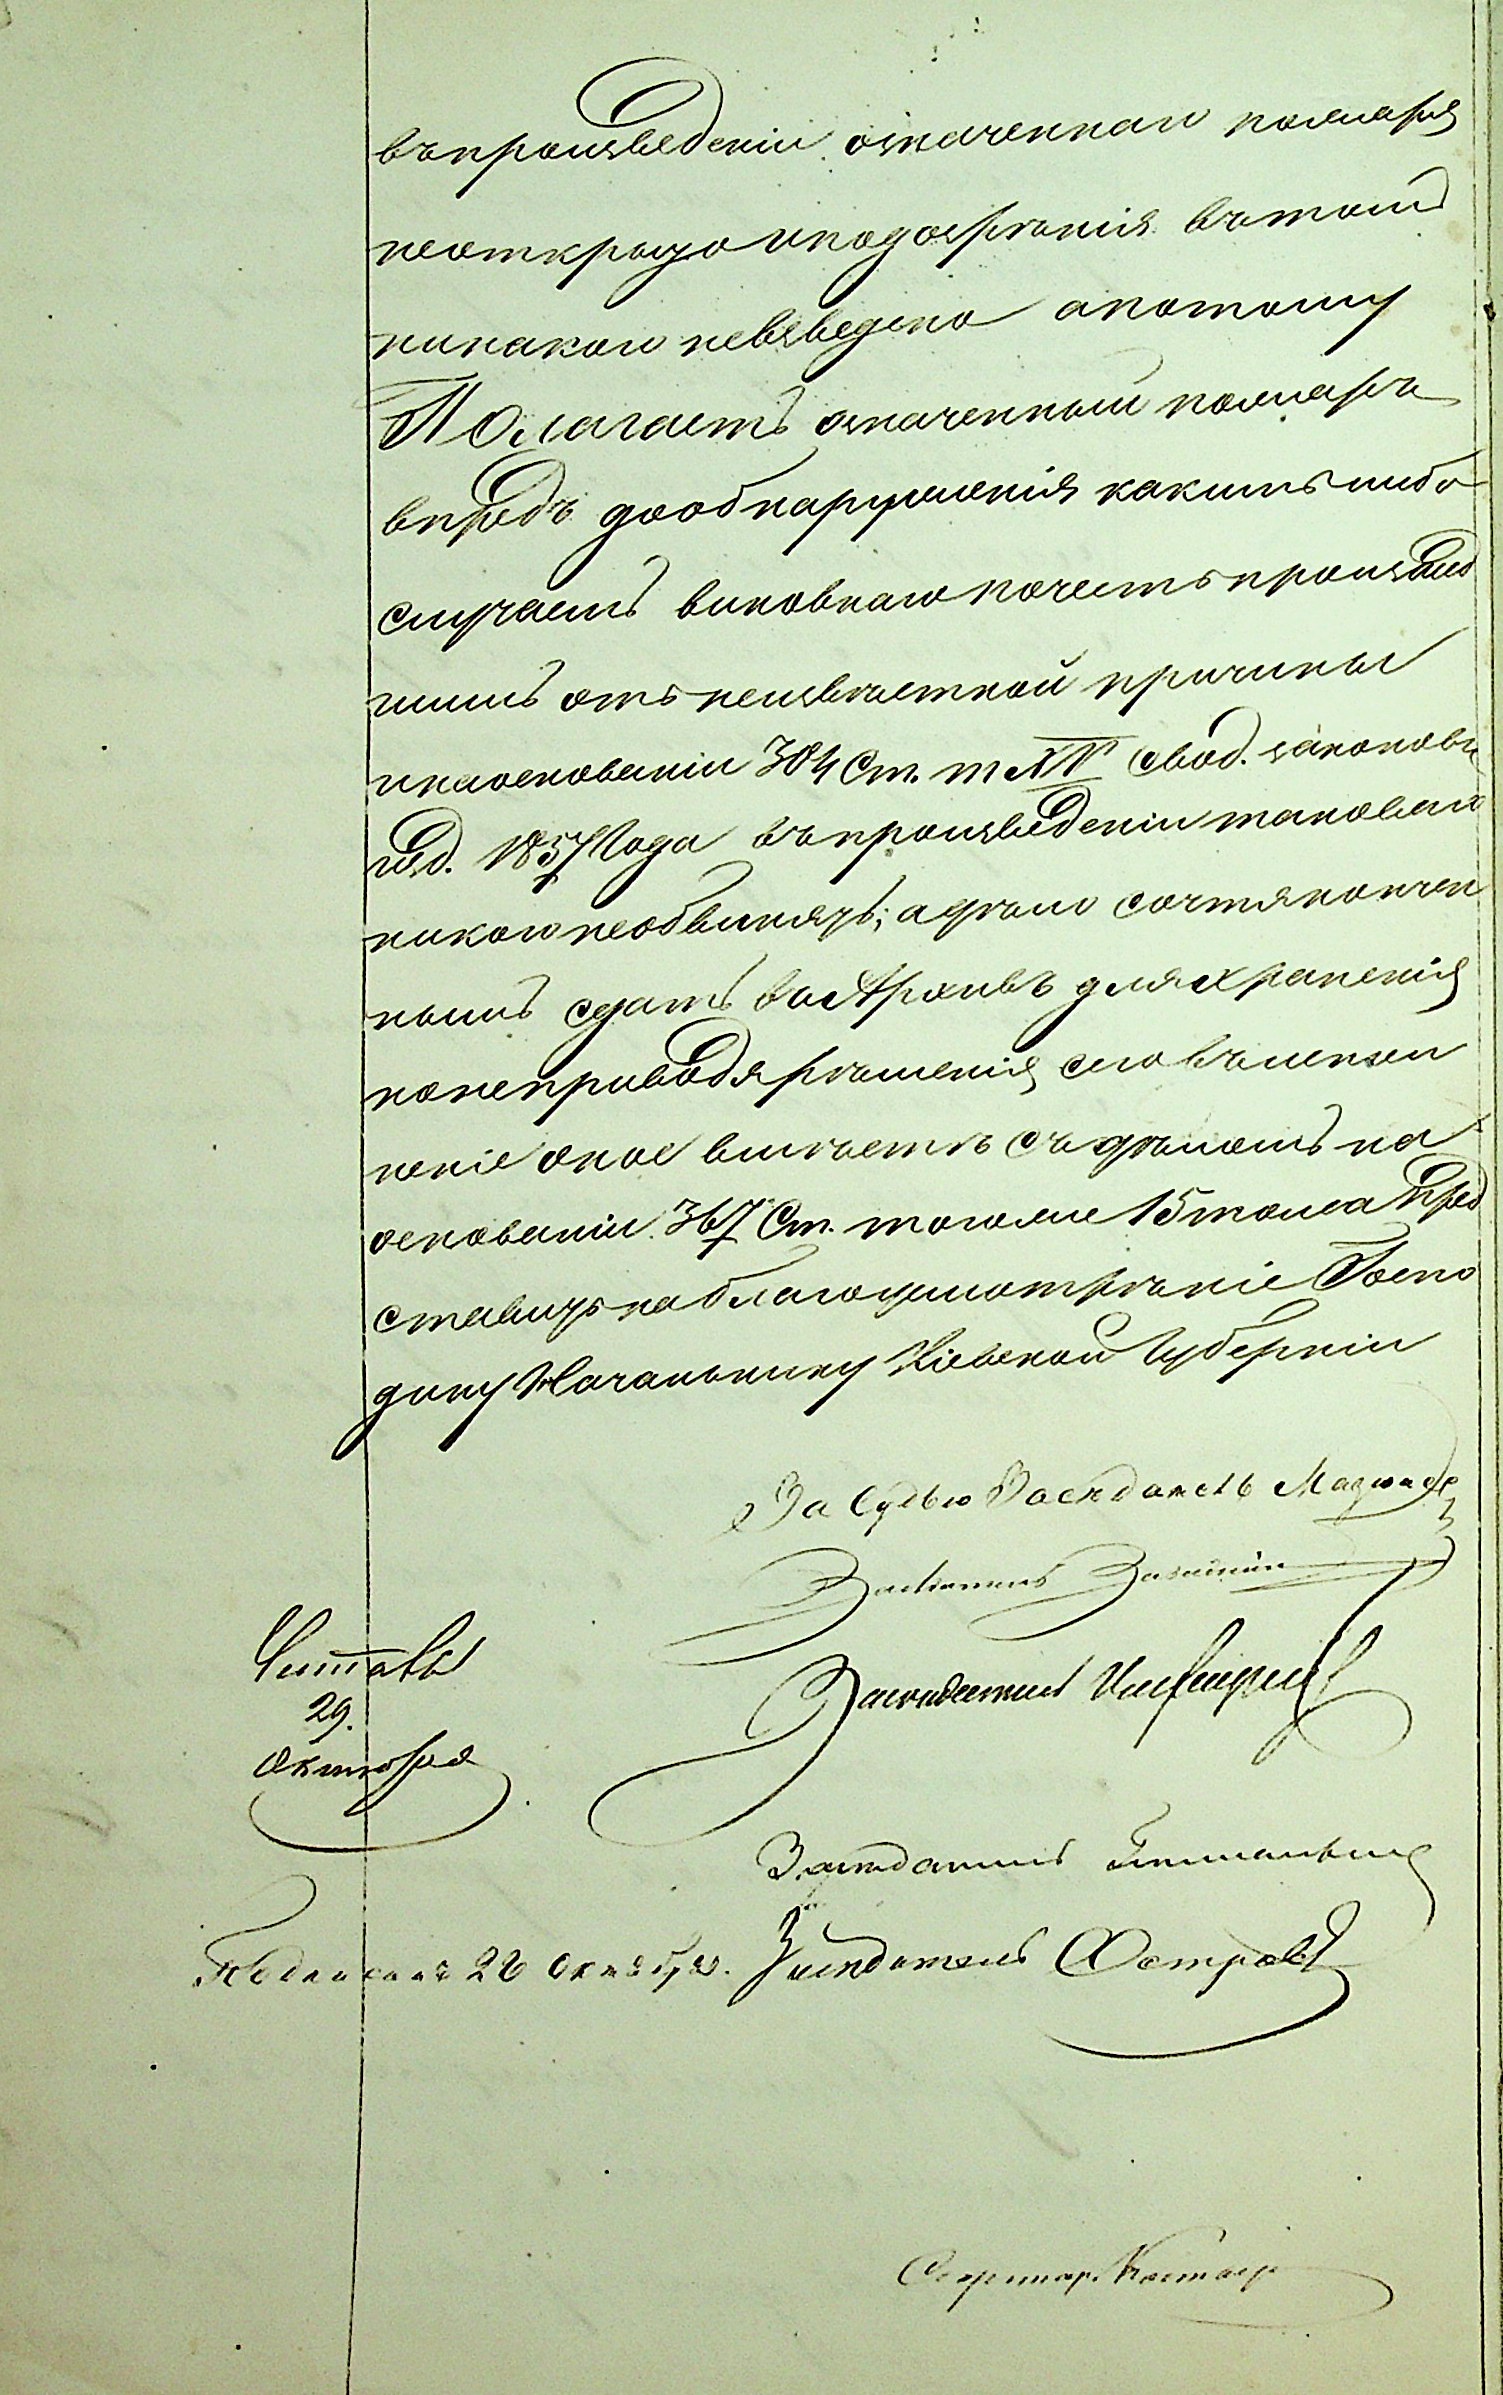 въ произведеніи означеннаго пожара
не открыто и подозрѣнія въ томъ
никакого не взведено а потому
Полагаетъ означенный пожаръ
впредь до обнаруженія какимъ либо
случаемъ виновнаго почесть произшед
шимъ отъ неизвѣстной причины
и на основаніи 304 Ст. т XV свод. законовъ
изд. 1857 Года въ произведеніи таковаго
никого не обвинять; а дѣло сочтя кончен
нымъ сдать въ Архивъ для храненія
но не приводя рѣшенія сего въ исполн
неніе оное вмѣстѣ съ дѣломъ на
основаніи 367 Ст. того же 15 тома Пред
ставить на благоусмотрѣніе Госпо
дину Начальнику Кіевской Губерніи
За Судью Засѣдатель
Засѣдатель
Засѣдатель
Читалъ
29.
Октября
Засѣдатель
Подписанъ 26 Октября. Засѣдатель Островъ
Секретарь